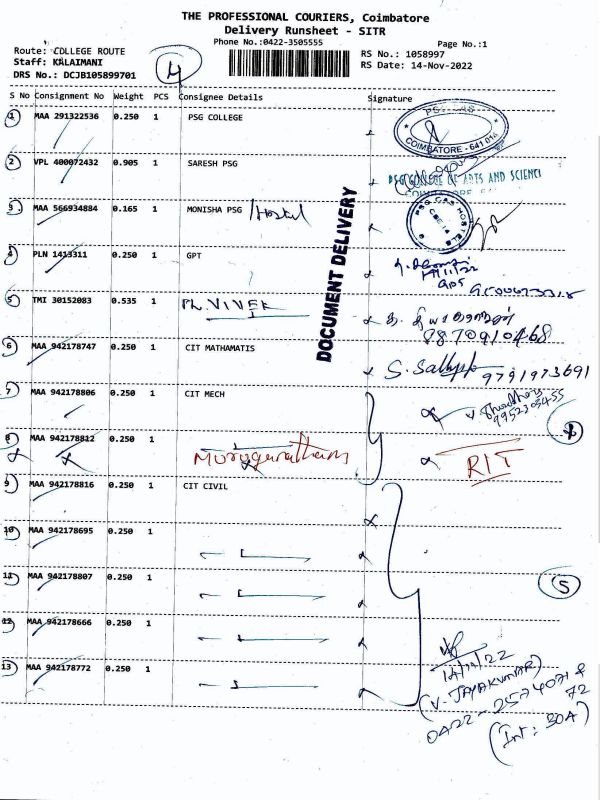 THE PROFESSIONAL COURIERS, Coimbatore
Delivery Runsheet - SITR
Phone No.:0422-3505555
Page No.:1
Route: COLLEGE ROUTE
Staff: KALAIMANI
DRS No.: DCJB105899701
4
RS No.: 1058997
RS Date: 14-Nov-2022
S No Consignment No Weight PCS Consignee Details Signature
1 MAA 291322536 0.250 1 PSG COLLEGE
COIMBATORE - 641 014
2 VPL 400072432 0.905 1 SARESH PSG
PSG COLLEGE OF ARTS AND SCIENCE
3 MAA 566934884 0.165 1 MONISHA PSG /Hostel
PSG CAS HOSTELS
DOCUMENT DELIVERY
4 PLN 1413311 0.250 1 GPT
5 TMI 30152083 0.535 1 PL. VIVEK
8870910468
6 MAA 942178747 0.250 1 CIT MATHAMATIS
9791973691
7 MAA 942178806 0.250 1 CIT MECH
9952305455
8 MAA 942178812 0.250 1 Muruganatham RIT
9 MAA 942178816 0.250 1 CIT CIVIL
10 MAA 942178695 0.250 1
11 MAA 942178807 0.250 1
5
12 MAA 942178666 0.250 1
13 MAA 942178772 0.250 1
14/11/22
(V. JAYAKUMAR)
0422-2574071 &
72
(Int: 30A)